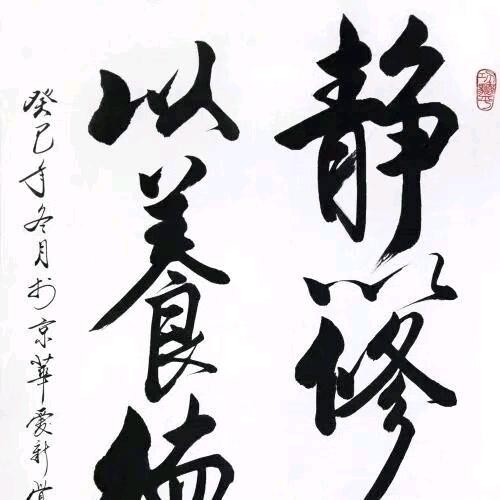 静以修
以養德
癸巳年冬月於京華愛新